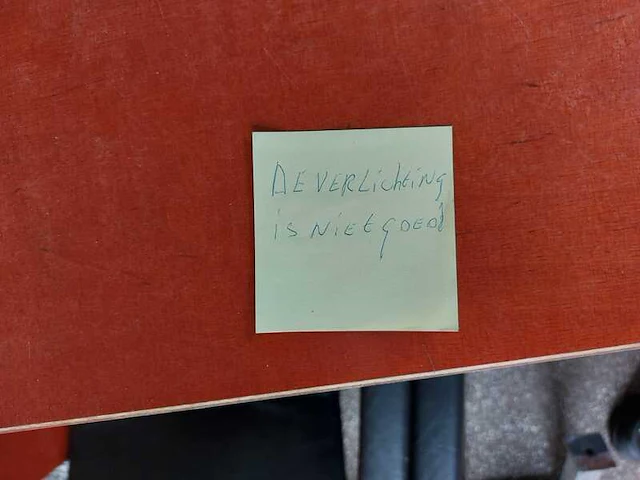 DE VERLichting
is Niet goed